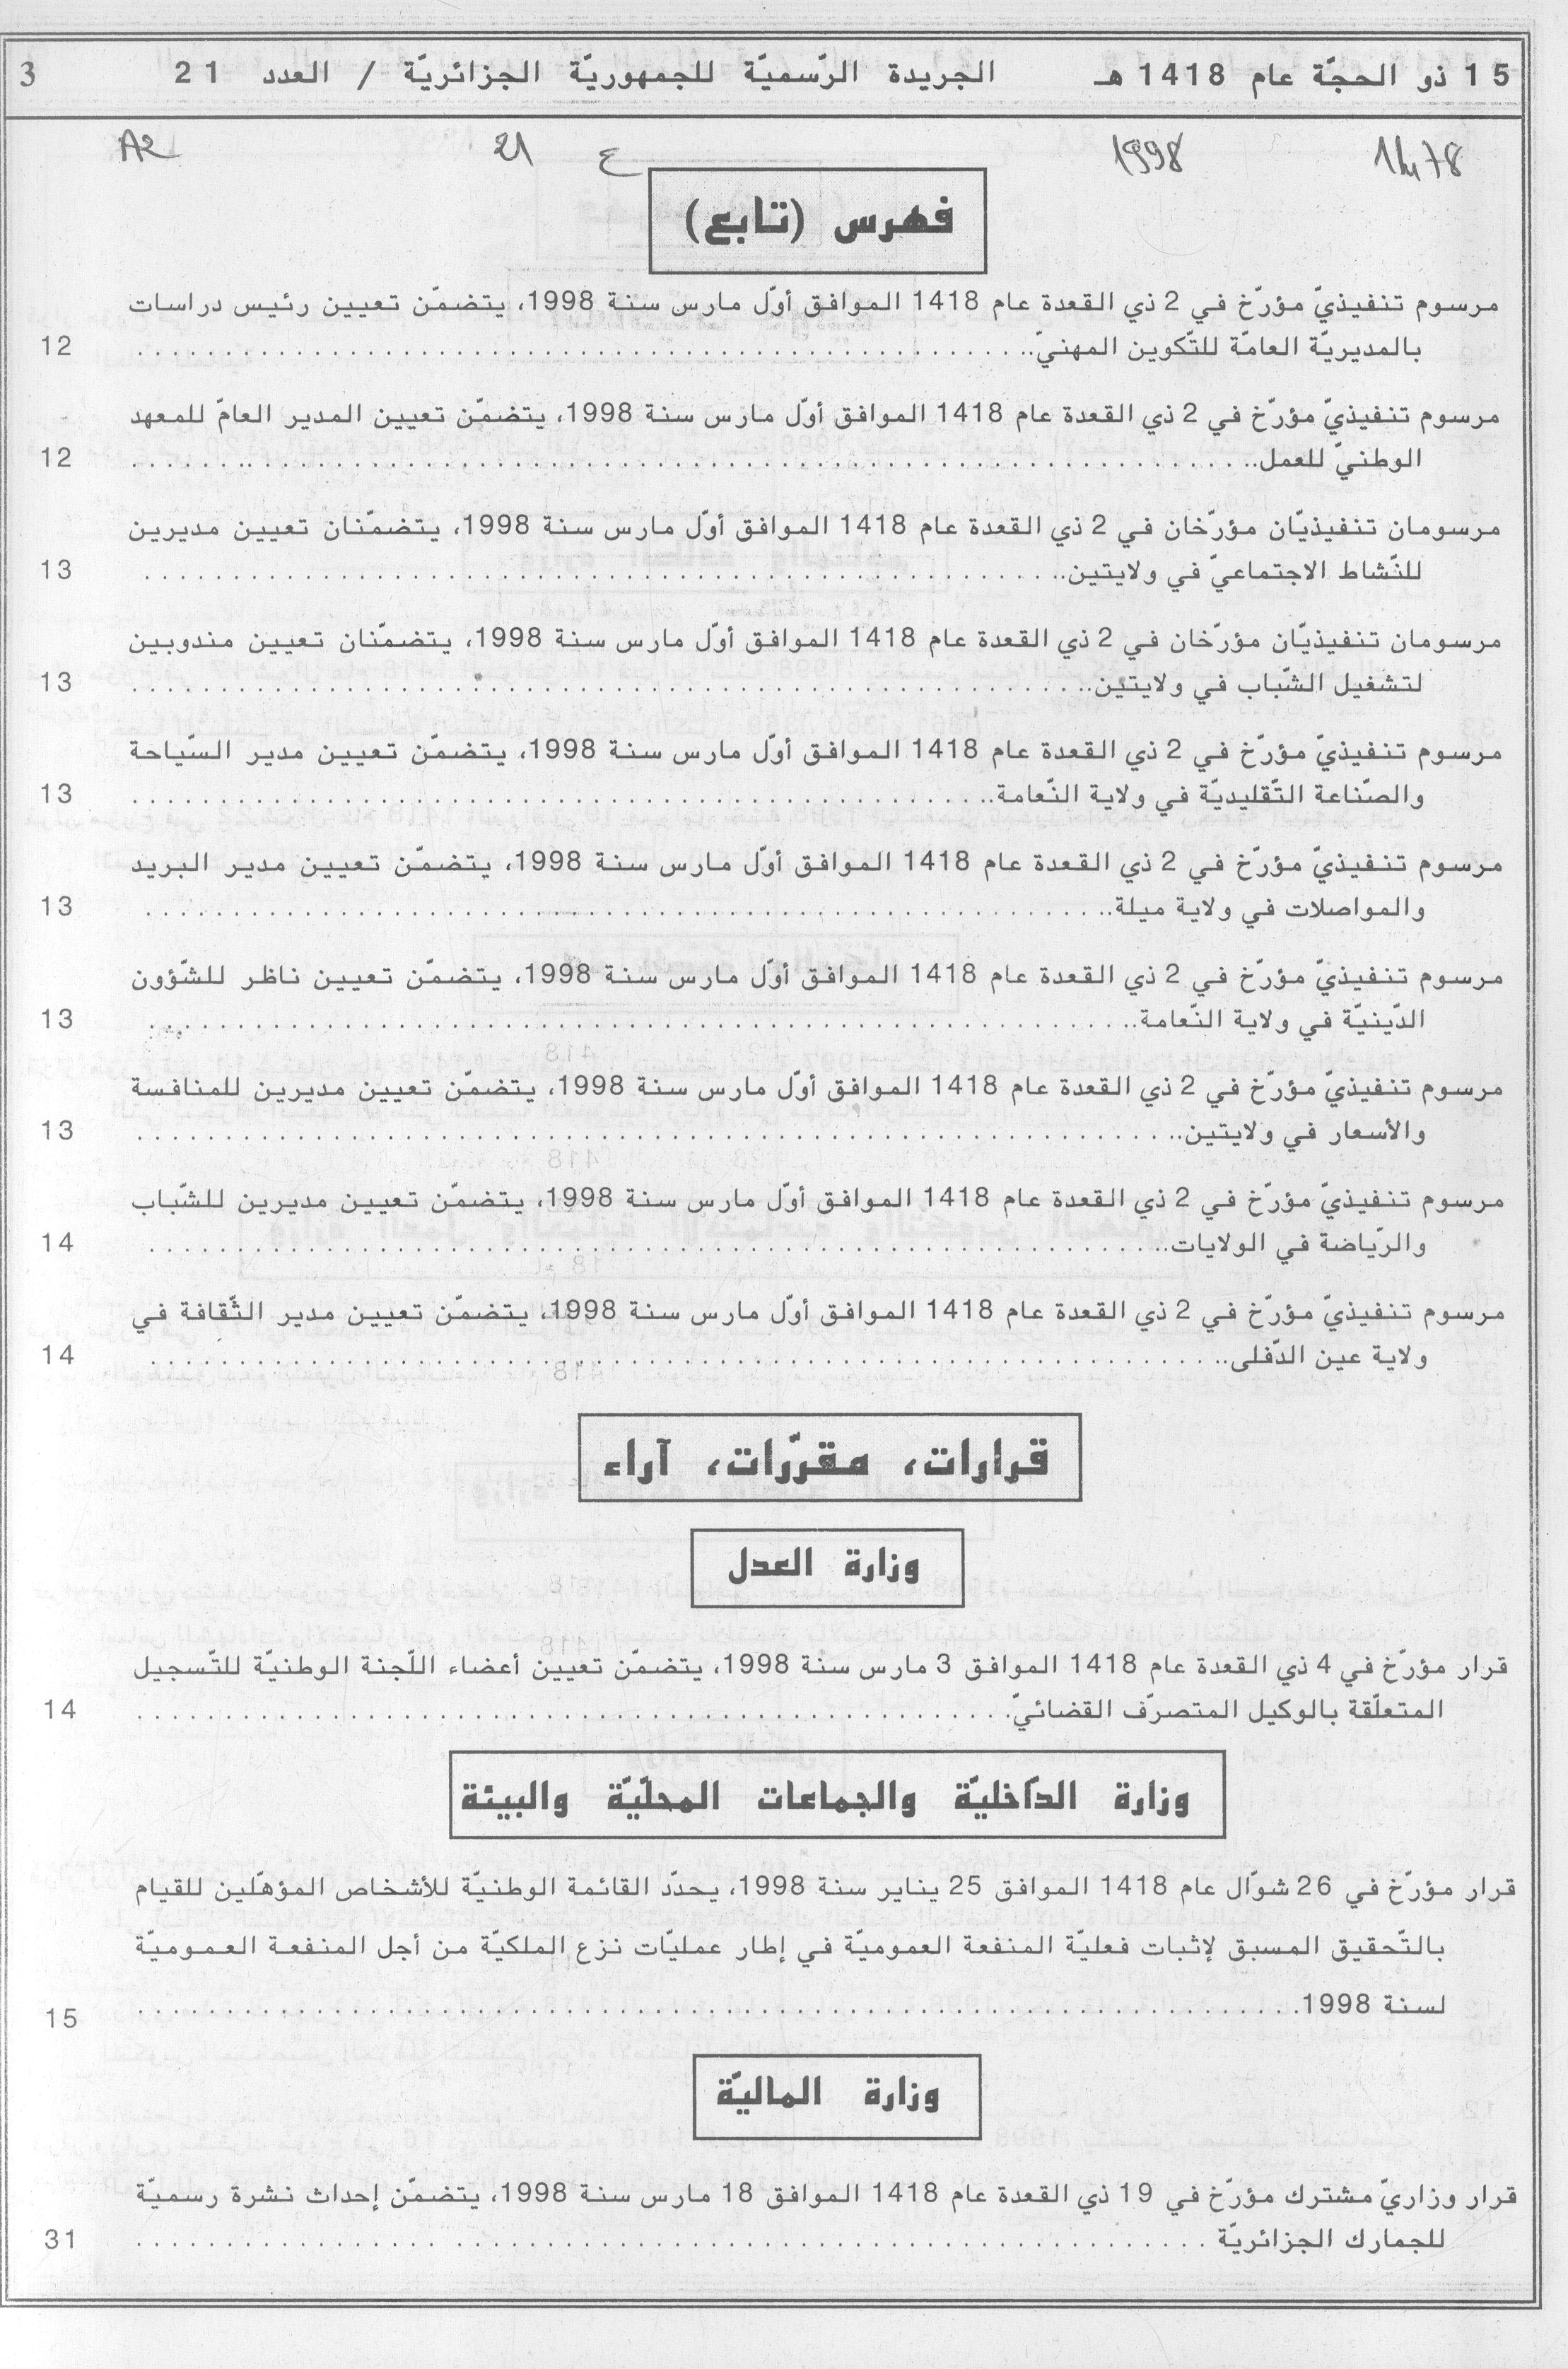 15 ذو الحجّة عام 1418 هـ الجريدة الرّسميّة للجمهوريّة الجزائريّة / العدد 21 3
1998 ع 21 A2
فهرس (تابع)
مرسوم تنفيذيّ مؤرّخ في 2 ذي القعدة عام 1418 الموافق أوّل مارس سنة 1998، يتضمّن تعيين رئيس دراسات
بالمديريّة العامّة للتّكوين المهنيّ.......................................................... 12
مرسوم تنفيذيّ مؤرّخ في 2 ذي القعدة عام 1418 الموافق أوّل مارس سنة 1998، يتضمّن تعيين المدير العامّ للمعهد
الوطنيّ للعمل.......................................................... 12
مرسومان تنفيذيّان مؤرّخان في 2 ذي القعدة عام 1418 الموافق أوّل مارس سنة 1998، يتضمّنان تعيين مديرين
للنّشاط الاجتماعيّ في ولايتين.......................................................... 13
مرسومان تنفيذيّان مؤرّخان في 2 ذي القعدة عام 1418 الموافق أوّل مارس سنة 1998، يتضمّنان تعيين مندوبين
لتشغيل الشّباب في ولايتين.......................................................... 13
مرسوم تنفيذيّ مؤرّخ في 2 ذي القعدة عام 1418 الموافق أوّل مارس سنة 1998، يتضمّن تعيين مدير السّياحة
والصّناعة التّقليديّة في ولاية النّعامة.......................................................... 13
مرسوم تنفيذيّ مؤرّخ في 2 ذي القعدة عام 1418 الموافق أوّل مارس سنة 1998، يتضمّن تعيين مدير البريد
والمواصلات في ولاية ميلة.......................................................... 13
مرسوم تنفيذيّ مؤرّخ في 2 ذي القعدة عام 1418 الموافق أوّل مارس سنة 1998، يتضمّن تعيين ناظر للشّؤون
الدّينيّة في ولاية النّعامة.......................................................... 13
مرسوم تنفيذيّ مؤرّخ في 2 ذي القعدة عام 1418 الموافق أوّل مارس سنة 1998، يتضمّن تعيين مديرين للمنافسة
والأسعار في ولايتين.......................................................... 13
مرسوم تنفيذيّ مؤرّخ في 2 ذي القعدة عام 1418 الموافق أوّل مارس سنة 1998، يتضمّن تعيين مديرين للشّباب
والرّياضة في الولايات.......................................................... 14
مرسوم تنفيذيّ مؤرّخ في 2 ذي القعدة عام 1418 الموافق أوّل مارس سنة 1998، يتضمّن تعيين مدير الثّقافة في
ولاية عين الدّفلى.......................................................... 14
قرارات، مقرّرات، آراء
وزارة العدل
قرار مؤرّخ في 4 ذي القعدة عام 1418 الموافق 3 مارس سنة 1998، يتضمّن تعيين أعضاء اللّجنة الوطنيّة للتّسجيل
المتعلّقة بالوكيل المتصرّف القضائيّ.......................................................... 14
وزارة الدّاخليّة والجماعات المحلّيّة والبيئة
قرار مؤرّخ في 26 شوّال عام 1418 الموافق 25 يناير سنة 1998، يحدّد القائمة الوطنيّة للأشخاص المؤهّلين للقيام
بالتّحقيق المسبق لإثبات فعليّة المنفعة العموميّة في إطار عمليّات نزع الملكيّة من أجل المنفعة العموميّة
لسنة 1998.......................................................... 15
وزارة الماليّة
قرار وزاريّ مشترك مؤرّخ في 19 ذي القعدة عام 1418 الموافق 18 مارس سنة 1998، يتضمّن إحداث نشرة رسميّة
للجمارك الجزائريّة .......................................................... 31